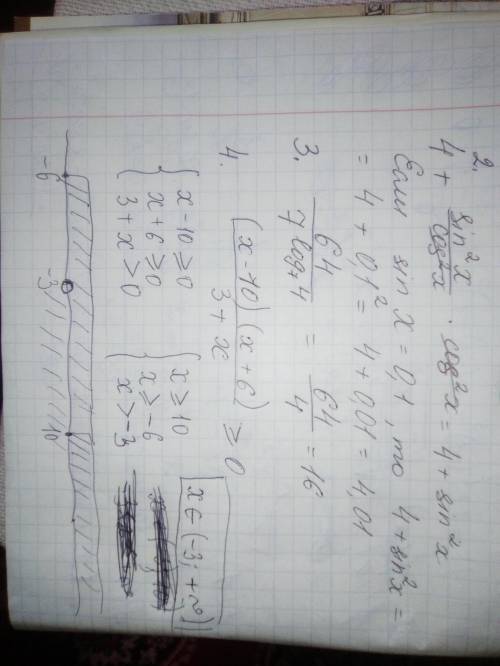 2.
4 + sin²x/cos²x · cos²x = 4 + sin²x
Если sin x = 0,1, то 4 + sin²x =
= 4 + 0,1² = 4 + 0,01 = 4,01
3. 64/7^log₇4 = 64/4 = 16
4. (x - 10)(x + 6)/3 + x ≥ 0
{ x - 10 ≥ 0 { x ≥ 10
x + 6 ≥ 0 x ≥ -6
3 + x > 0 x > -3
x ∈ (-3; +∞)
-6 -3 10